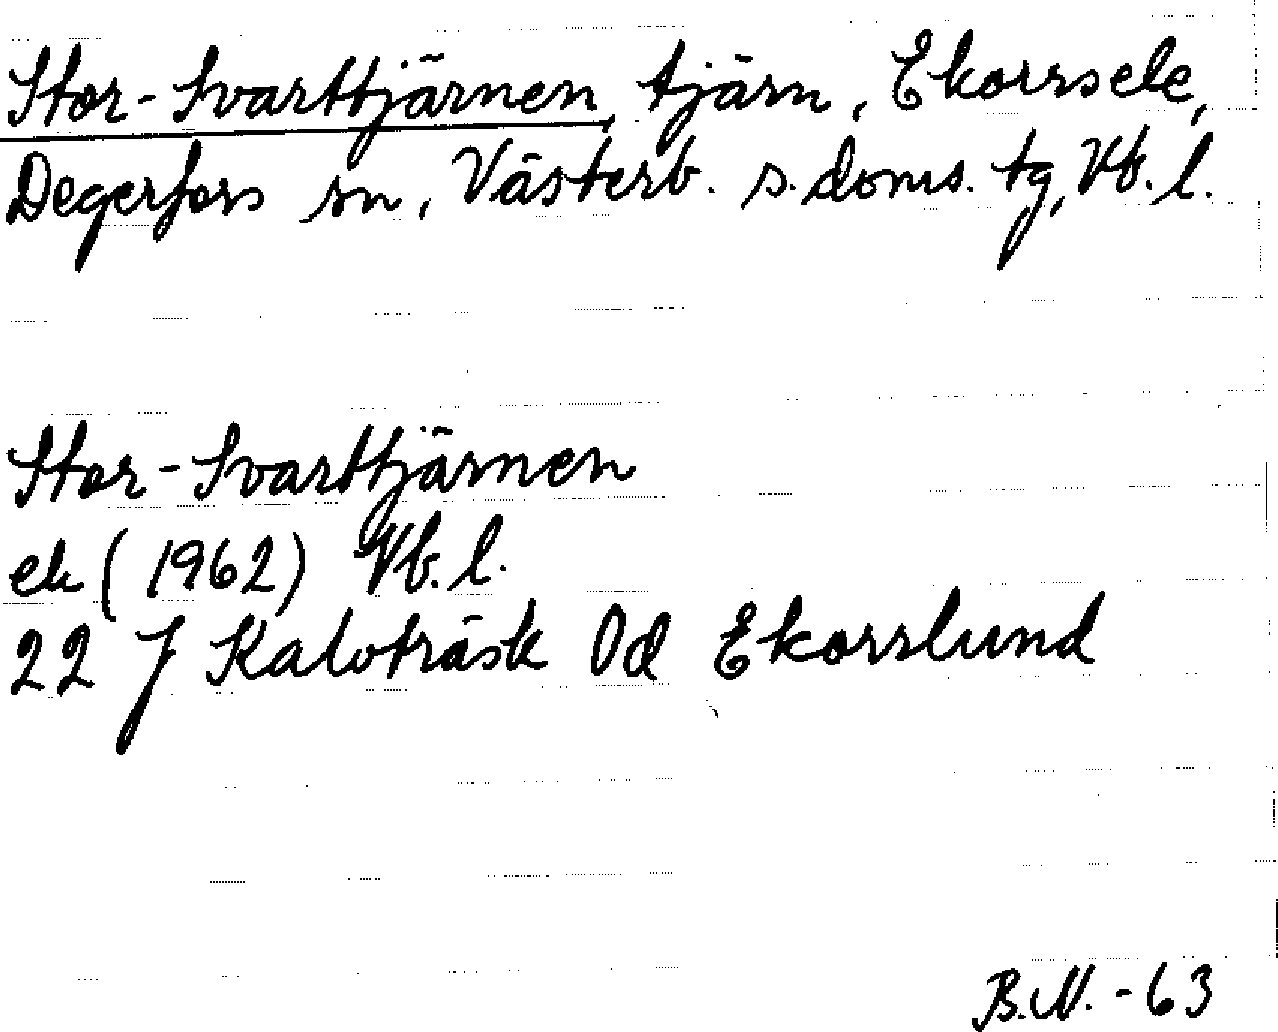 Stor-Svarttjärnen, tjärn, Ekorrsele,
Degerfors sn, Västerb. s. doms. tg, Vb. l.
Stor-Svarttjärnen
ek (1962) Vb. l.
22 J Kalvträsk 0d Ekorrlund
B.N. -63